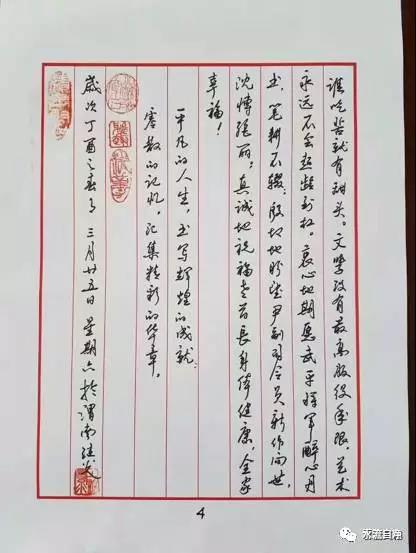 谁吃苦就有甜头。文学没有最高服役年限，艺术
永远不会超龄到杠。衷心地期愿武平将军醉心丹
书，笔耕不辍；殷切地盼望尹副司令员新作问世，
沈博绝丽。真诚地祝福老首長身体健康，全家
幸福！
平凡的人生，书写辉煌的成就；
零散的记忆，汇集精彩的华章。
歲次丁酉之春 三月廿五日 星期六於渭南
4
水流自净